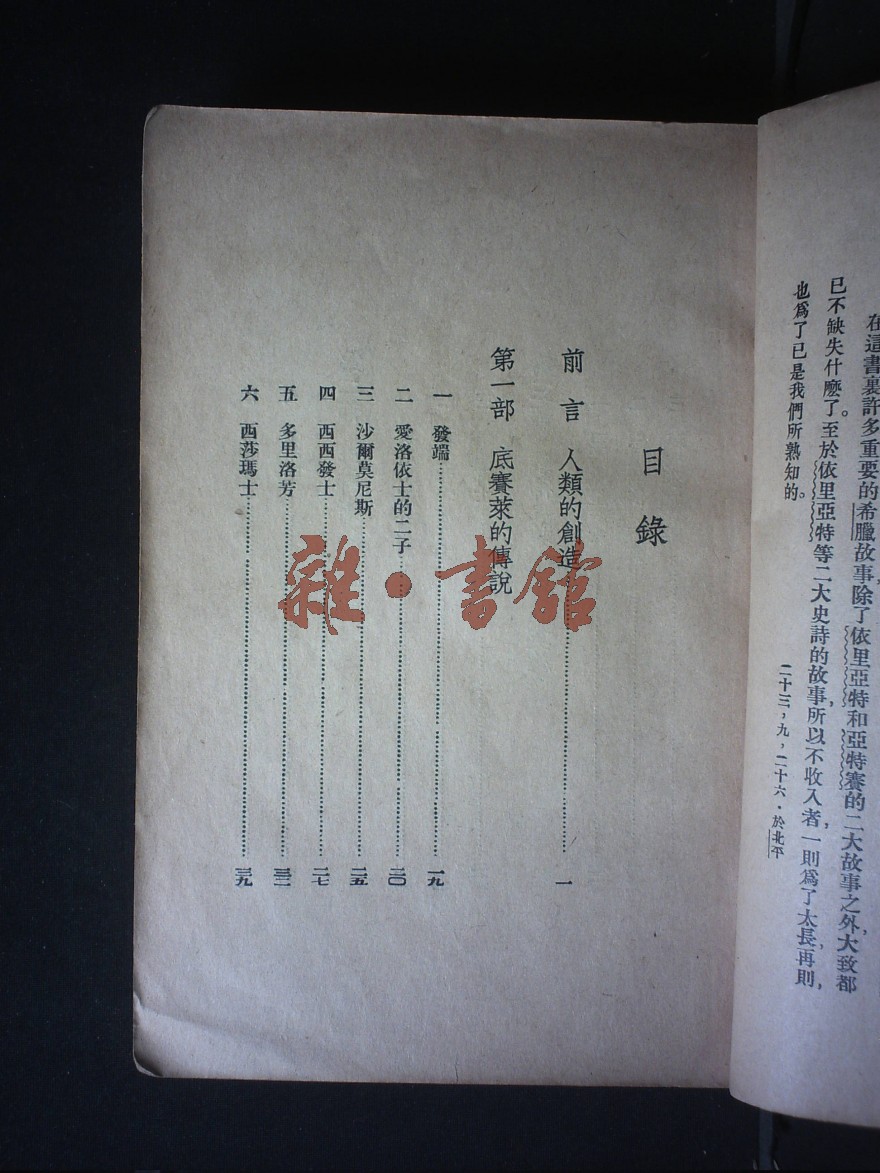 在這書裏許多重要的希臘故事，除了依里亞特和亞特賽的二大故事之外，大致都
已不缺失什麽了。至於依里亞特等二大史詩的故事，所以不收入者，一則爲了太長，再則，
也爲了已是我們所熟知的。
二十三，九，二十六，於北平
目錄
前言 人類的創造……一
第一部 底賽萊的傳說
一 發端……一九
二 愛洛依士的二子……二〇
三 沙爾莫尼斯……二五
四 西西發士……二七
五 多里洛芳……三二
六 西莎瑪士……三九
雜·書館